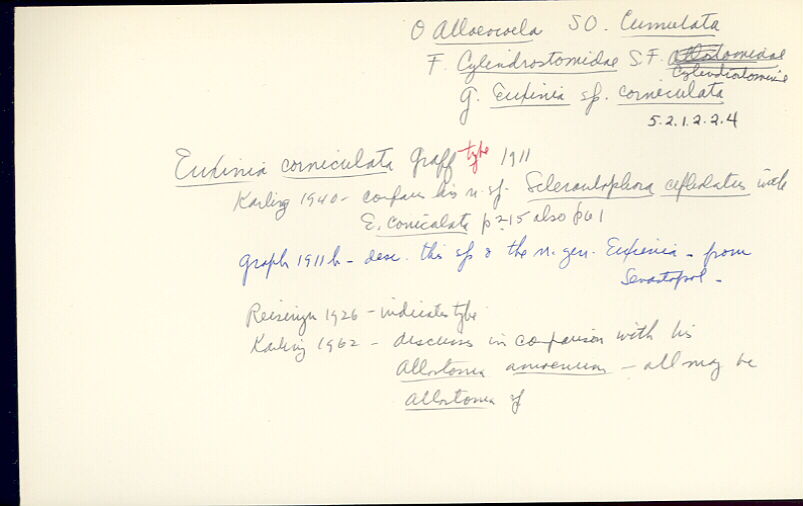 O Alloeocoela SO. Cumulata
F. Cylindrostomidae S.F. Allostominae
Cylindrostominae
G. Euxinia sp. corniculata
5.2.1.2.2.4
Euxinia corniculata Graff type 1911
Karling 1940 - compares his n. sp. Scleraulophora cephalatus with
E. corniculata p 215 also p61
Graff 1911b - desc. this sp & the n. gen. Euxinia - from
Sevastopol -
Reisinger 1926 - indicates type
Karling 1962 - discusses in comparison with his
Allostoma amoenum - all may be
Allostoma sp